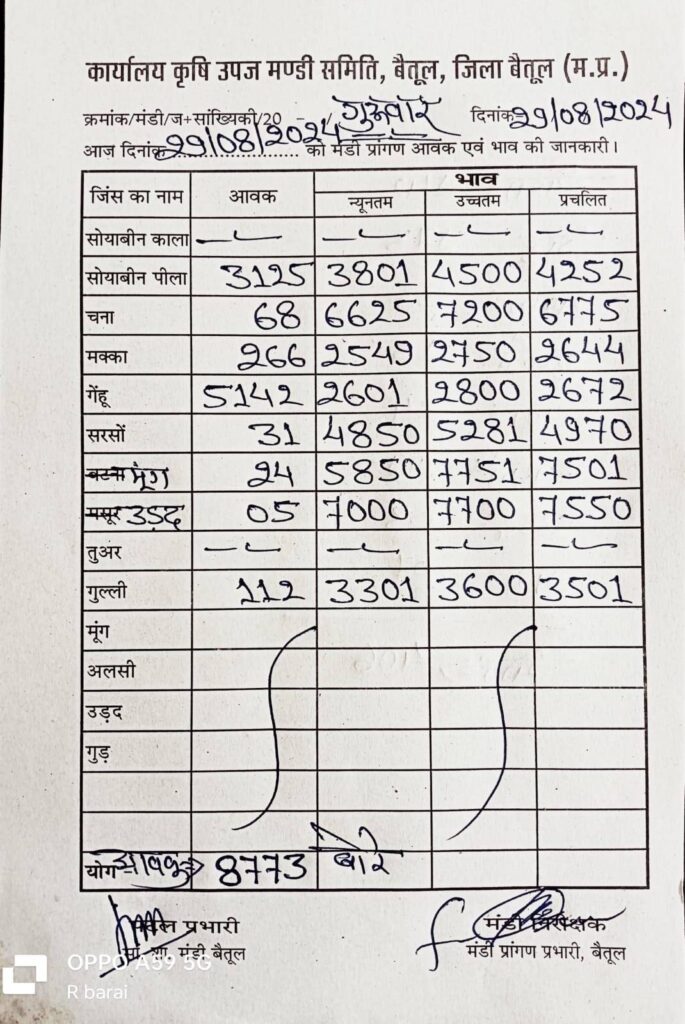 कार्यालय कृषि उपज मण्डी समिति, बैतूल, जिला बैतूल (म.प्र.)
क्रमांक/मंडी/ज+सांख्यिकी/20 - / गुरूवार दिनांक 29/08/2024
आज दिनांक 29/08/2024 को मंडी प्रांगण आवक एवं भाव की जानकारी।
जिंस का नाम आवक भाव
न्यूनतम उच्चतम प्रचलित
सोयाबीन काला — — — —
सोयाबीन पीला 3125 3801 4500 4252
चना 68 6625 7200 6775
मक्का 266 2549 2750 2644
गेंहू 5142 2601 2800 2672
सरसों 31 4850 5281 4970
बटना मूंग 24 5850 7751 7501
मसूर उड़द 05 7000 7700 7550
तुअर — — — —
गुल्ली 112 3301 3600 3501
मूंग
अलसी
उड़द
गुड़
योग आवक 8773 बोरे
प्रभारी मंडी निरीक्षक
मंडी बैतूल मंडी प्रांगण प्रभारी, बैतूल
OPPO A59 5G
R barai